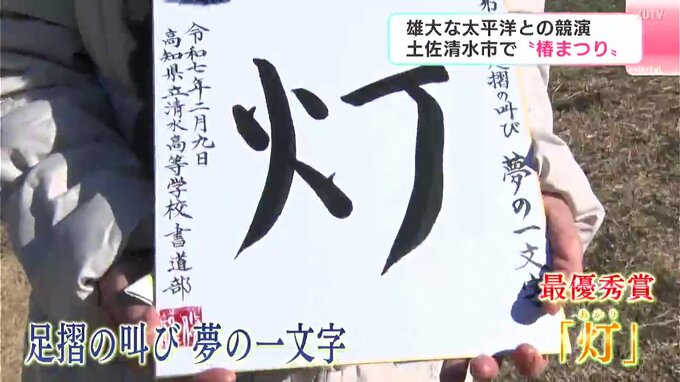 KUTV
雄大な太平洋との競演
土佐清水市で〝椿まつり〟
足摺の叫び 夢の一文字
灯
令和七年二月九日
高知県立清水高等学校 書道部
最優秀賞
あかり
「灯」
足摺の叫び 夢の一文字